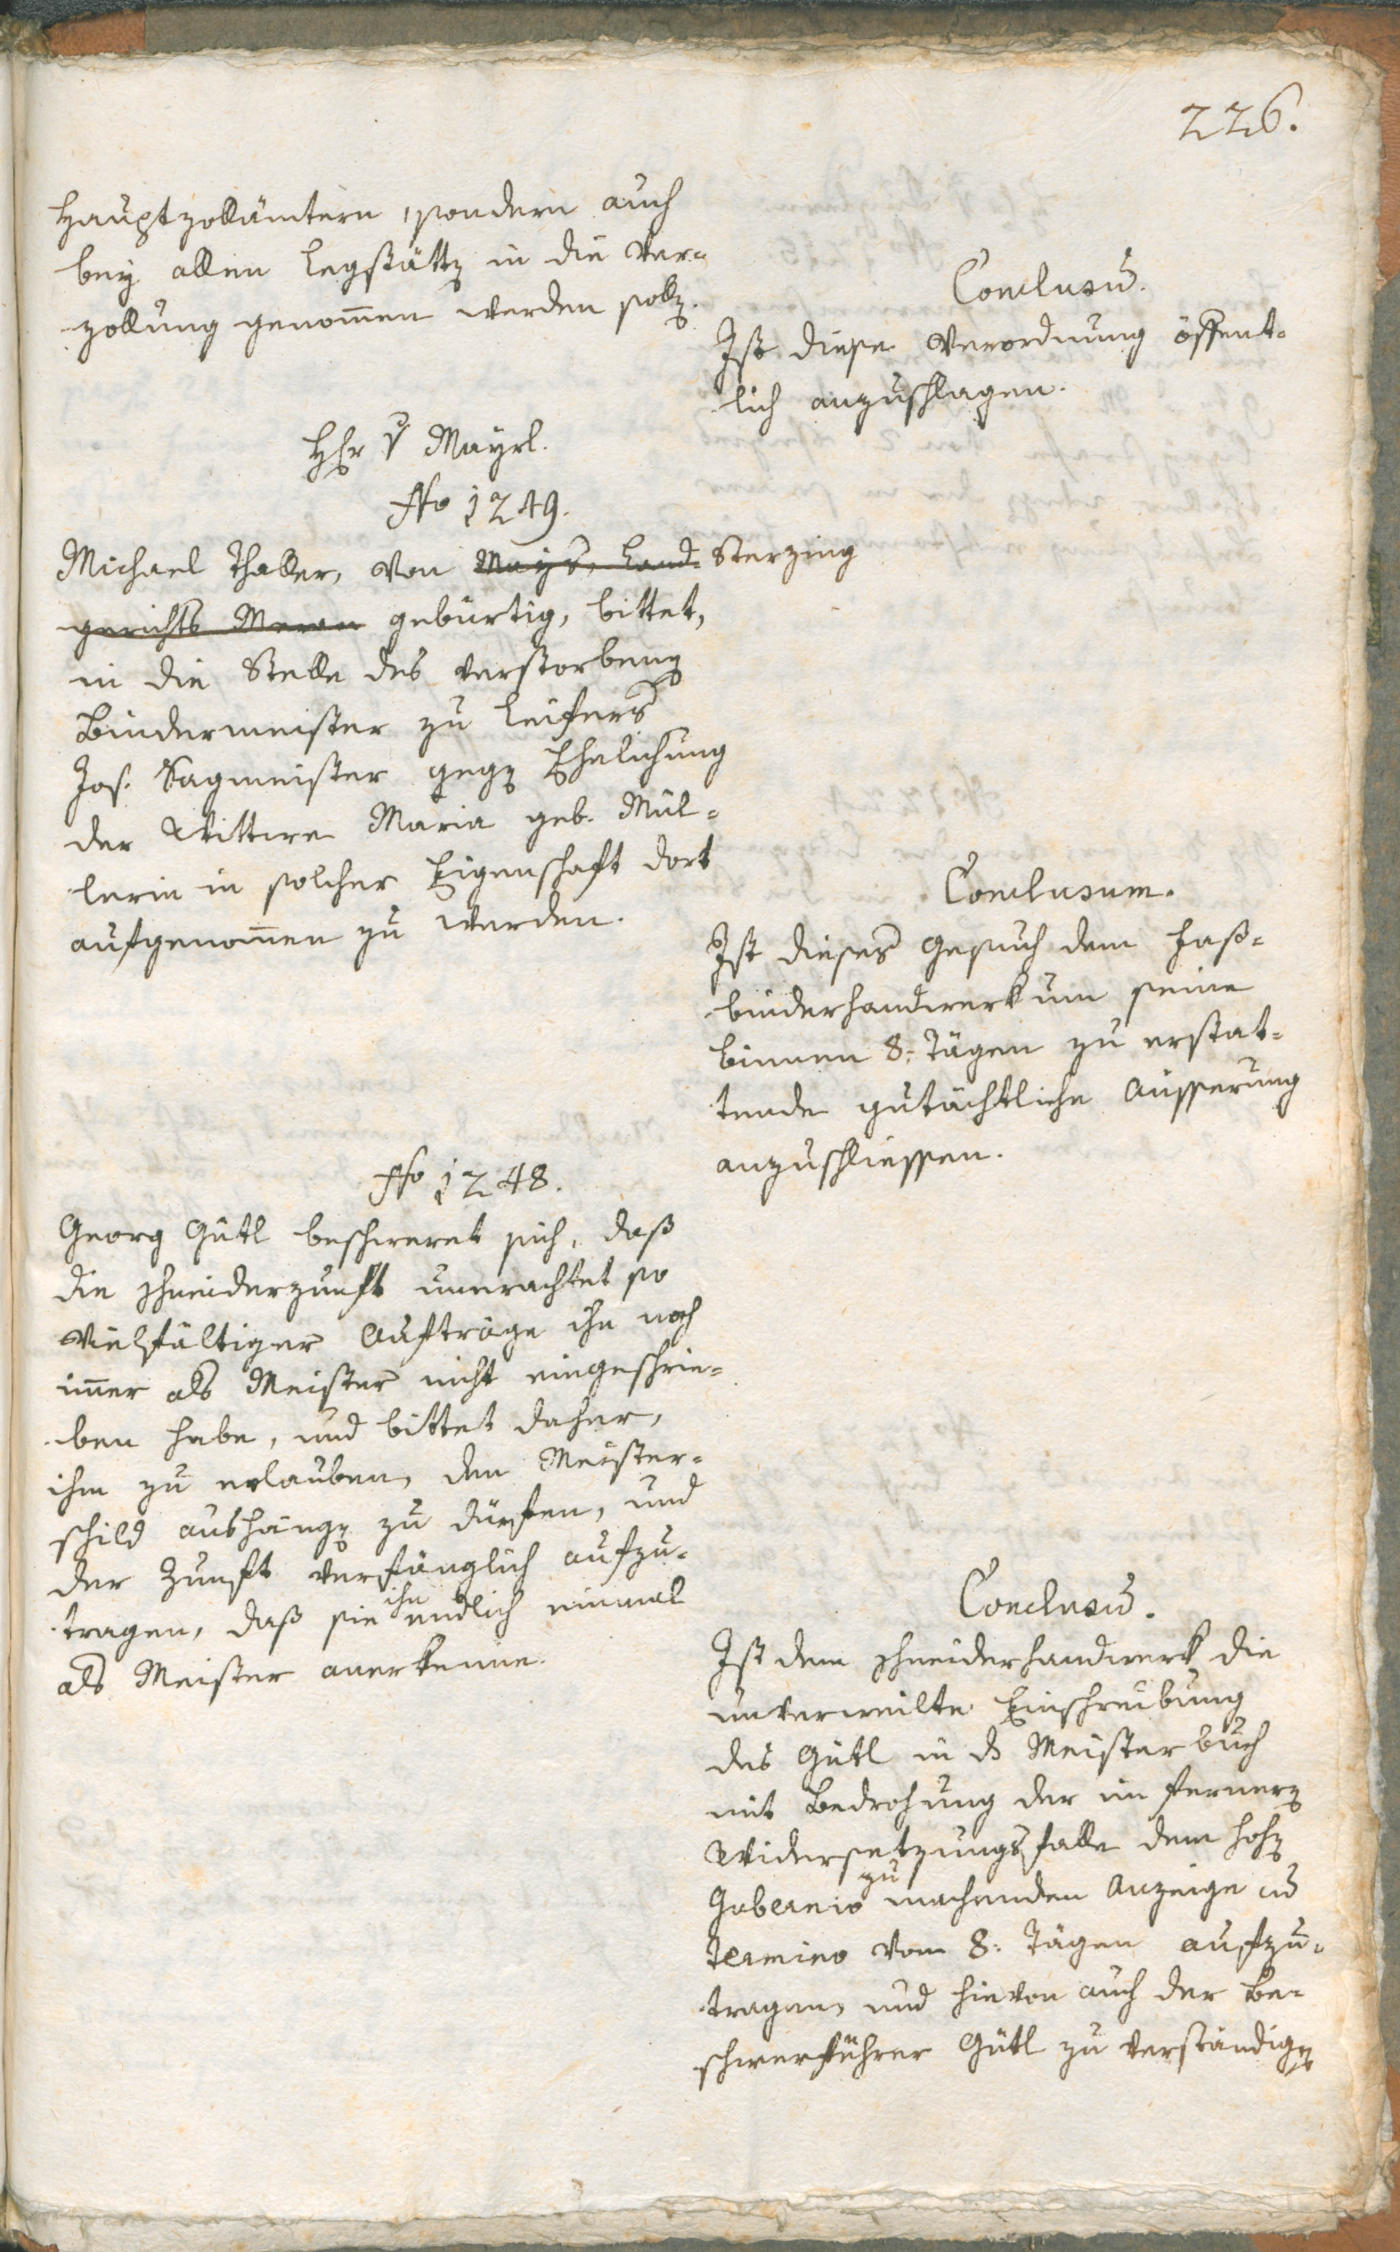 226.
Hauptzollämtern, sondern auch
bey allen Legstätten in die Ver-
zollung genommen werden sollen.
Conclusum.
Ist diese Verordnung öffent-
lich anzuschlagen.
Hr v Mayrl.
No 1249.
Michael Thaller, von Mays, Land- Sterzing
gerichts Meran gebürtig, bittet,
in die Stelle des verstorbenen
Bindermeister zu Leifers
Jos. Sagmeister gegen Ehelichung
der Wittwe Maria geb. Mül-
lerin in solcher Eigenschaft dort
aufgenommen zu werden.
Conclusum.
Ist dieses Gesuch dem Faß-
binderhandwerk um seine
binnen 8: Tägen zu erstat-
tende gutächtliche Äusserung
anzuschliessen.
No 1248.
Georg Gütl beschweret sich, daß
die Schneiderzunft unerachtet so
vielfältiger Aufträge ihn noch
immer als Meister nicht eingeschrie-
ben habe, und bittet daher,
ihm zu erlauben, den Meister-
schild aushängen zu dürfen, und
der Zunft verfänglich aufzu-
tragen, daß sie ihn endlich einmal
als Meister anerkenne.
Conclusum.
Ist dem Schneiderhandwerk die
unverweilte Einschreibung
des Gütl in das Meisterbuch
mit Bedrohung der im fernern
Widersetzungsfalle dem hohen
Gubernio zu machenden Anzeige cum
Termino von 8: Tägen aufzu-
tragen, und hievon auch der Be-
schwerführer Gütl zu verständigen